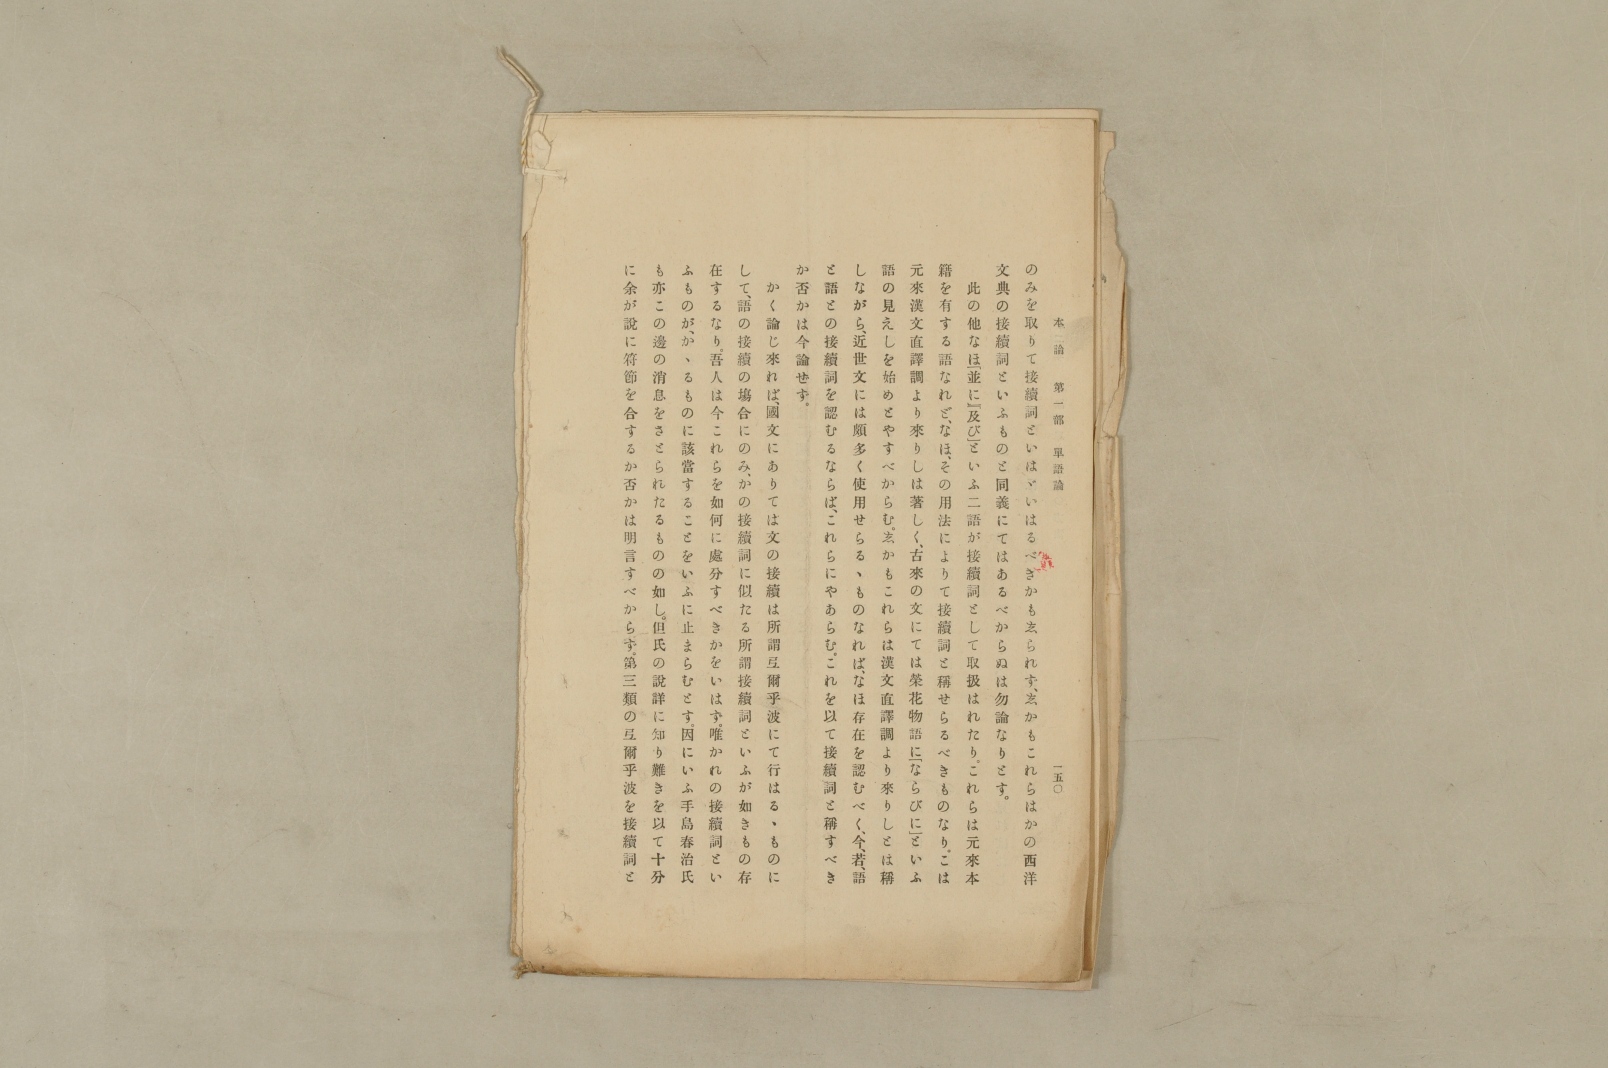 本論　第一部　單語論　一五〇
のみを取りて接續詞といはゞいはるべきかも志られず、志かもこれらはかの西洋
文典の接續詞といふものと同義にてはあるべからぬは勿論なりとす。
此の他なほ「並に」「及び」といふ二語が接續詞として取扱はれたり。これらは元來本
籍を有する語なれど、なほ、その用法によりて接續詞と稱せらるべきものなり。こは
元來漢文直譯調より來りしは著しく、古來の文にては榮花物語に「ならびに」といふ
語の見えしを始めとやすべからむ。志かもこれらは漢文直譯調より來りしとは稱
しながら、近世文には頗多く使用せらるゝものなれば、なほ存在を認むべく、今、若、語
と語との接續詞を認むるならば、これらにやあらむ。これを以て接續詞と稱すべき
か否かは今論せず。
かく論じ來れば、國文にありては文の接續は所謂弖爾乎波にて行はるゝものに
して、語の接續の塲合にのみ、かの接續詞に似たる所謂接續詞といふが如きもの存
在するなり。吾人は今これらを如何に處分すべきかをいはず。唯かれの接續詞とい
ふものが、かゝるものに該當することをいふに止まらむとす。因にいふ手島春治氏
も亦この邊の消息をさとられたるものの如し。但氏の說詳に知り難きを以て十分
に余が說に符節を合するか否かは明言すべからず。第三類の弖爾乎波を接續詞と